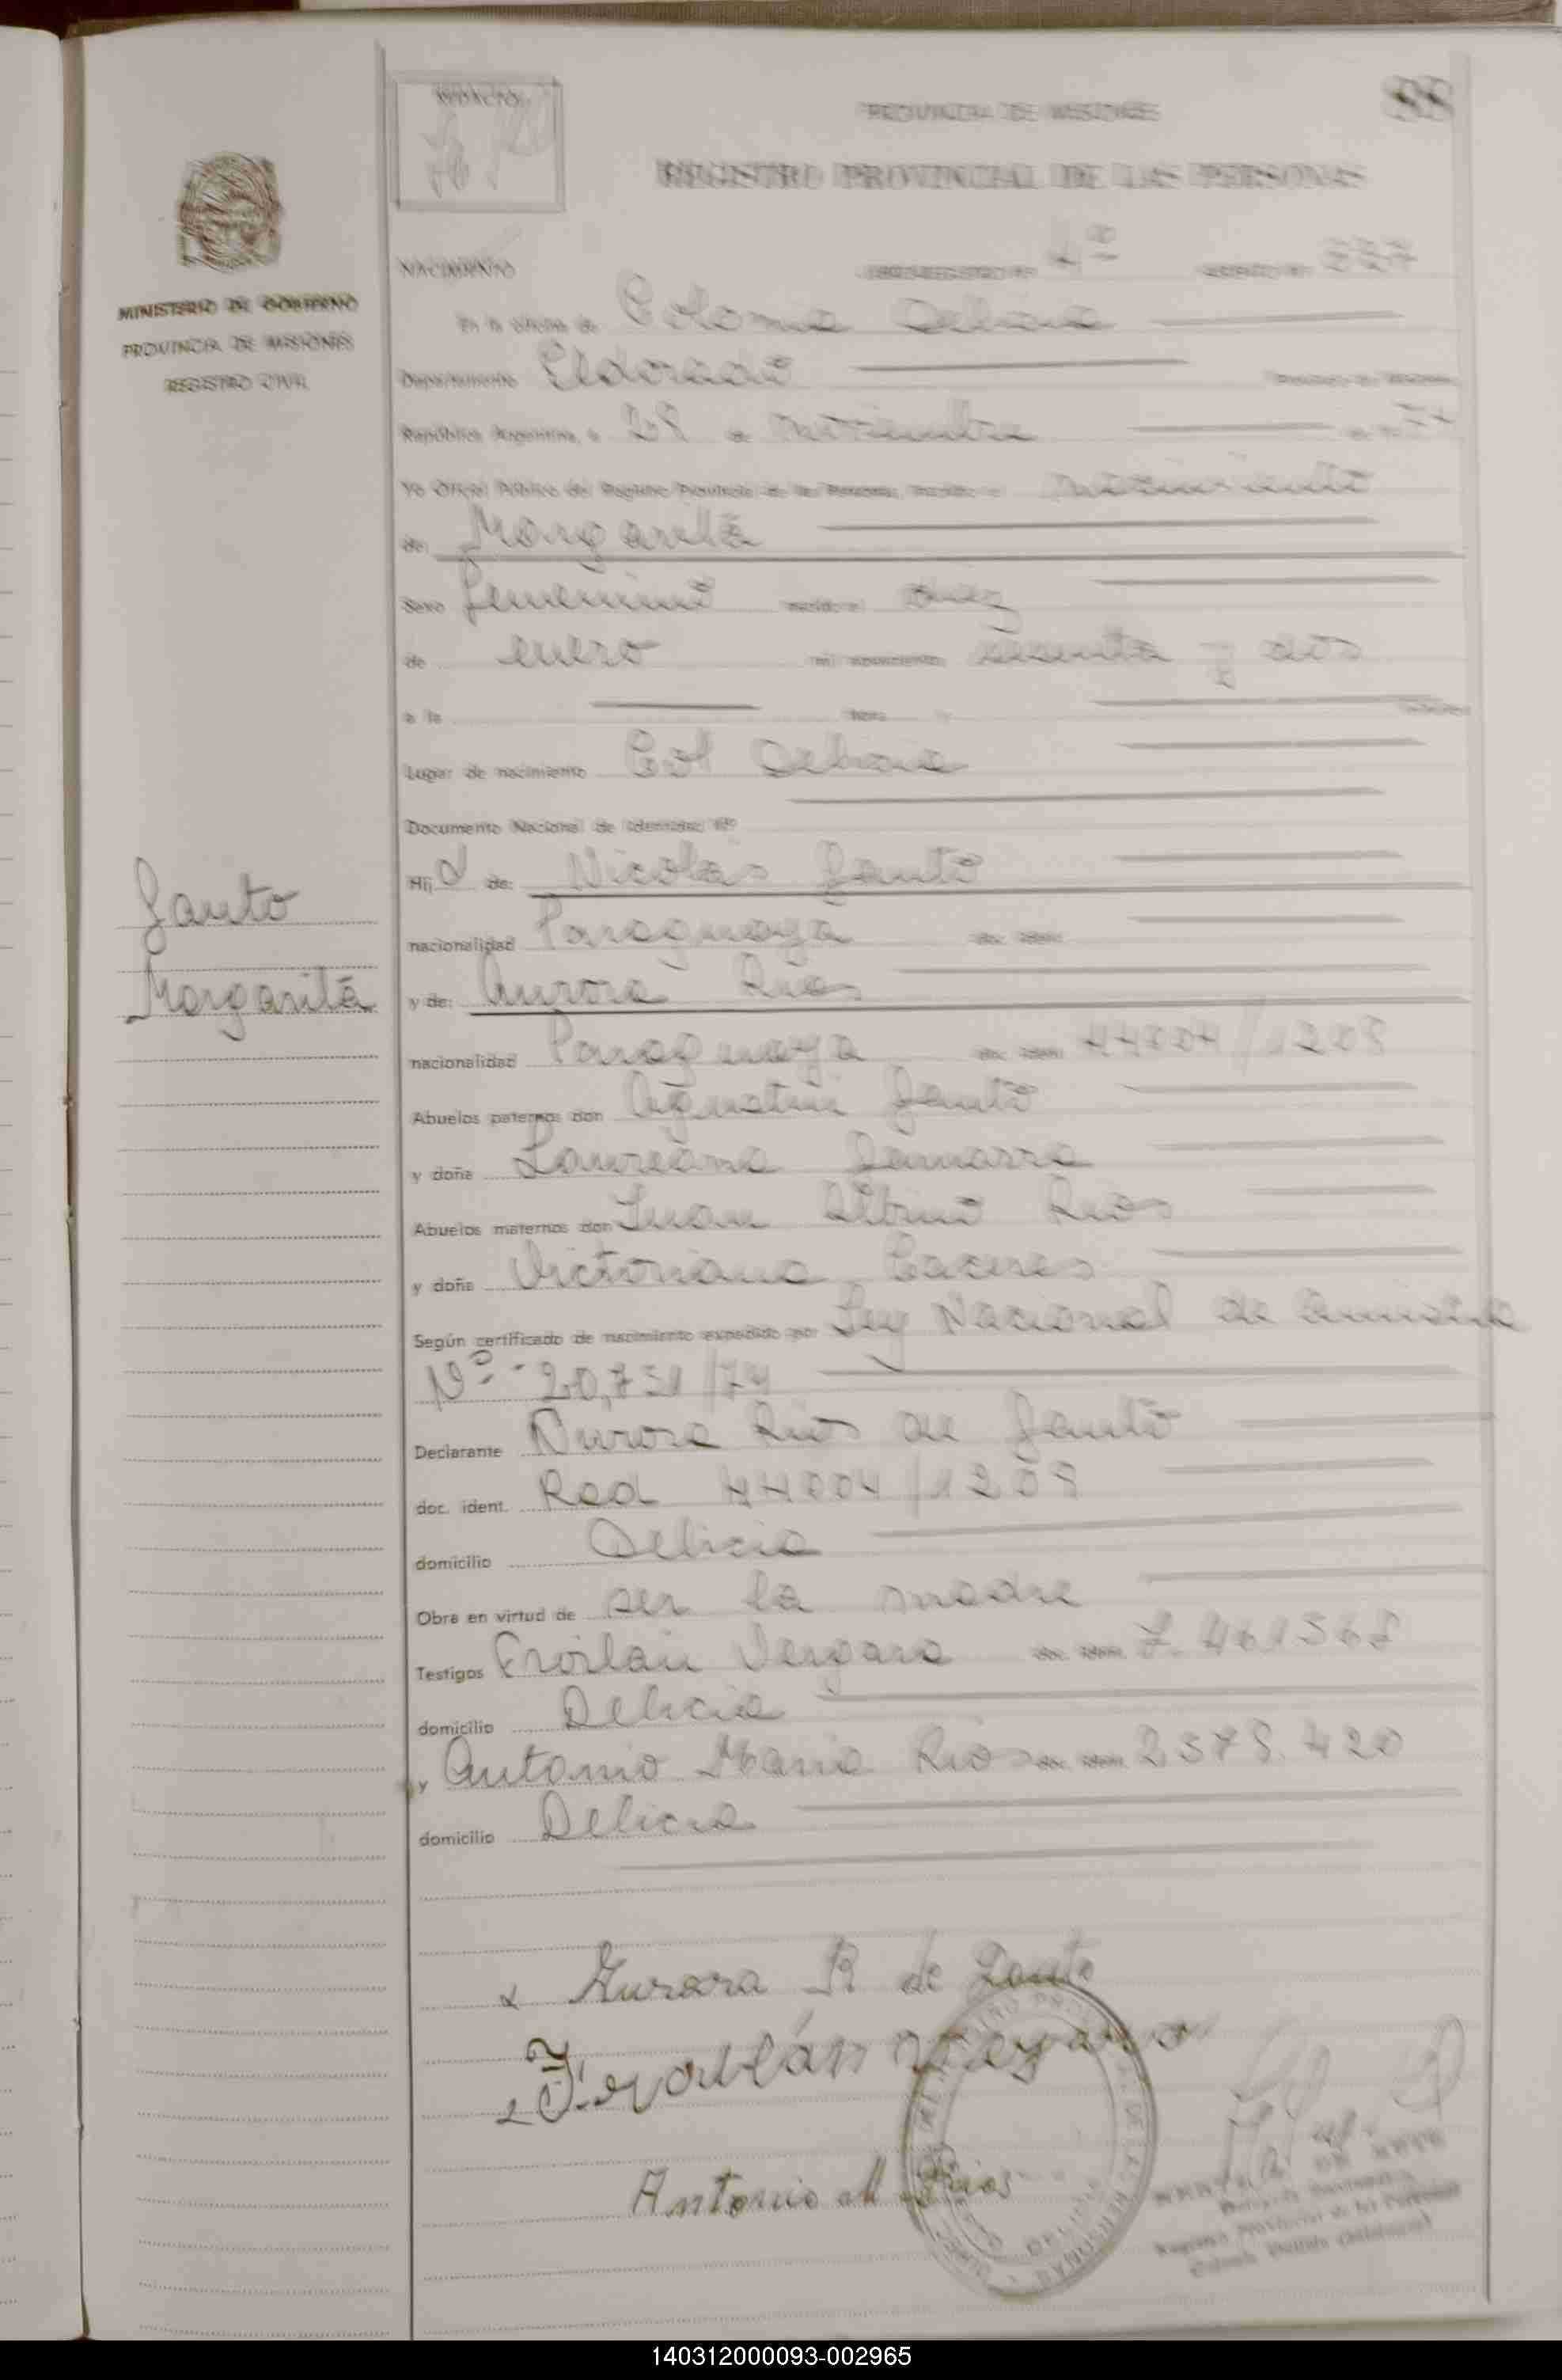 88
PROVINCIA DE MISIONES
REGISTRO PROVINCIAL DE LAS PERSONAS
MINISTERIO DE GOBIERNO
PROVINCIA DE MISIONES
REGISTRO CIVIL
NACIMIENTO
En la oficina de Colonia Delicia
Departamento Eldorado Provincia de Misiones
República Argentina, a 28 de noviembre
Yo Oficial Público del Registro Provincial de las Personas, inscribo el nacimiento
de: Margarita
Sexo femenino nacida el diez
de enero mil novecientos sesenta y dos
a la hora
Lugar de nacimiento Col Delicia
Documento Nacional de Identidad Nº
Hij a de: Nicolás Santo
nacionalidad Paraguaya doc. ident.
y de: Aurora Rios
nacionalidad Paraguaya doc. ident. 44004/1209
Abuelos paternos don Agustin Santo
y doña Laureana Gamarra
Abuelos maternos don Juan Albino Rios
y doña Victoriana Caceres
Según certificado de nacimiento expedido por Ley Nacional de amnistia
Nº- 20,751/74
Declarante Aurora Rios de Santo
doc. ident. Rad 44004/1209
domicilio Delicia
Obra en virtud de ser la madre
Testigos Froilan Vergara doc. ident. 7.461568
domicilio Delicia
y Antonio Maria Rios doc. ident. 2578.420
domicilio Delicia
Santo
Margarita
Aurora R de Santo
Froilán
Antonio M Rios
Registro Provincial de las Personas
Colonia Delicia (Misiones)
140312000093-002965